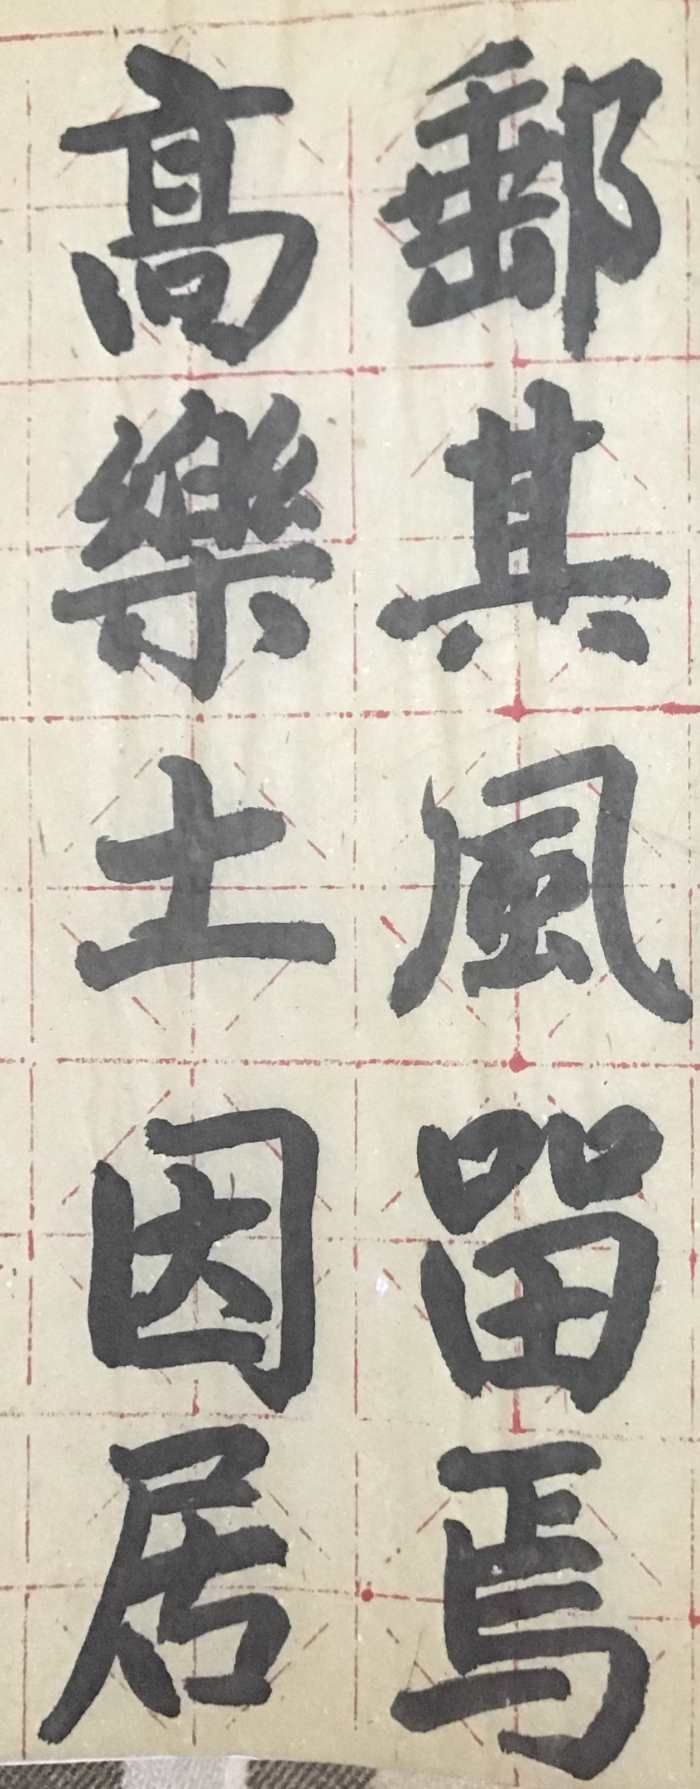 郵其風留焉
高樂土因居